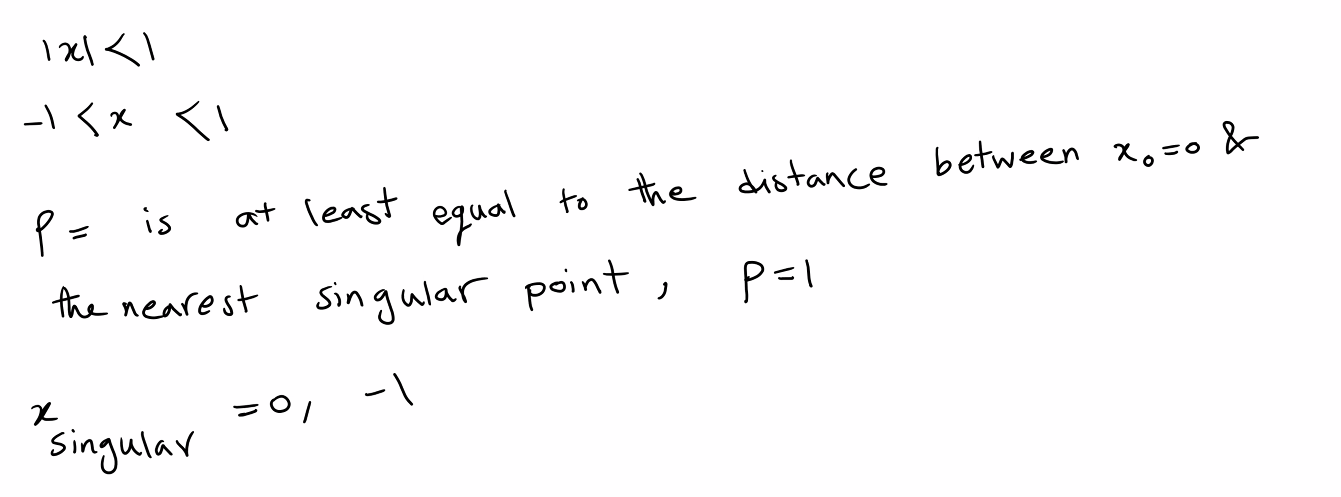 |x| < 1
-1 < x < 1
ρ = is at least equal to the distance between x₀=0 &
the nearest singular point, ρ=1
x singular = 0, -1